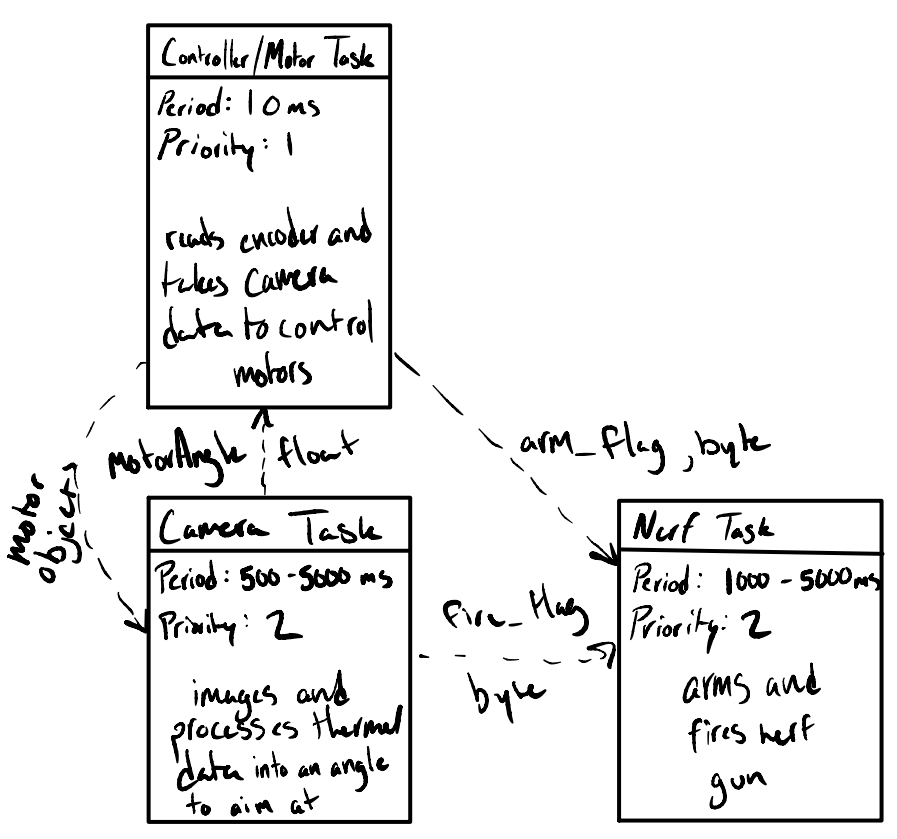 Controller/Motor Task
Period: 10 ms
Priority: 1
reads encoder and
takes camera
data to control
motors
motor
object
motorAngle
float
arm_flag, byte
Camera Task
Period: 500-5000 ms
Priority: 2
images and
processes thermal
data into an angle
to aim at
fire_flag
byte
Nerf Task
Period: 1000-5000ms
Priority: 2
arms and
fires nerf
gun